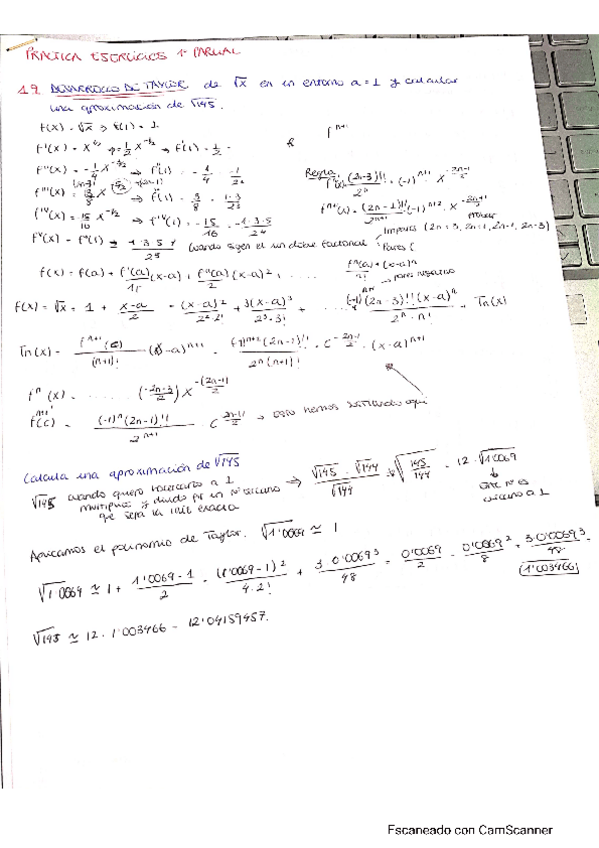 PRÁCTICA EJERCICIOS 1º PARCIAL
19. DESARROLLO DE TAYLOR de √x en un entorno a=1 y calcular
una aproximación de √145.
f(x) = √x → f(1) = 1.
f'(x) = 1/2 x^-1/2 → f'(1) = 1/2
f''(x) = -1/4 x^-3/2 → f''(1) = -1/4
Regla:
f'''(x) = 3/8 → f'''(1) = 3/8 = 1·3/2³
f^IV(x) = -15/16 x^-7/2 → f^IV(1) = -15/16 = -1·3·5/2⁴
Impares (2n-3, 2n-1, 2n+1, 2n-3)
Pares (
cuando siguen el un doble factorial
f(x) = f(a) + f'(a)/1! (x-a) + f''(a)/2 (x-a)² + ....
para negativo
f(x) = √x = 1 + (x-a)/2 - (x-a)²/2²·2! + 3(x-a)³/2³·3! + (-1) (2n-3)!! (x-a)^n / 2^n · n! + Tn(x)
Tn(x) = f^n+1(c)/(n+1)! (x-a)^n+1 = (-1)^n+2 (2n-1)!!/2^n (n+1)! · c^-2n-1/2 · (x-a)^n+1
f^n(x) = ...... (-2n-3/2) x^-(2n-1)/2
f^n+1(c) = (-1)^n (2n-1)!!/2^n+1 · c^2n-1/2 → esto hemos sustituido aquí
Calcula una aproximación de √145
√145 cuando quiero acercarlo a 1
multiplico y divido por un nº cercano
que sea la raíz exacta
→ √145 · √144/√144 → √145/144 = 12 · √1'0069
↓
este nº es
cercano a 1
Aplicamos el polinomio de Taylor. √1'0069 ≃ 1
√1'0069 ≃ 1 + 1'0069-1/2 - (1'0069-1)²/4·2! + 3·0'0069³/48 = 0'0069/2 - 0'0069²/8 + 3·0'0069³/48 =
1'003466
√145 ≃ 12 · 1'003466 = 12'04159457.
Escaneado con CamScanner